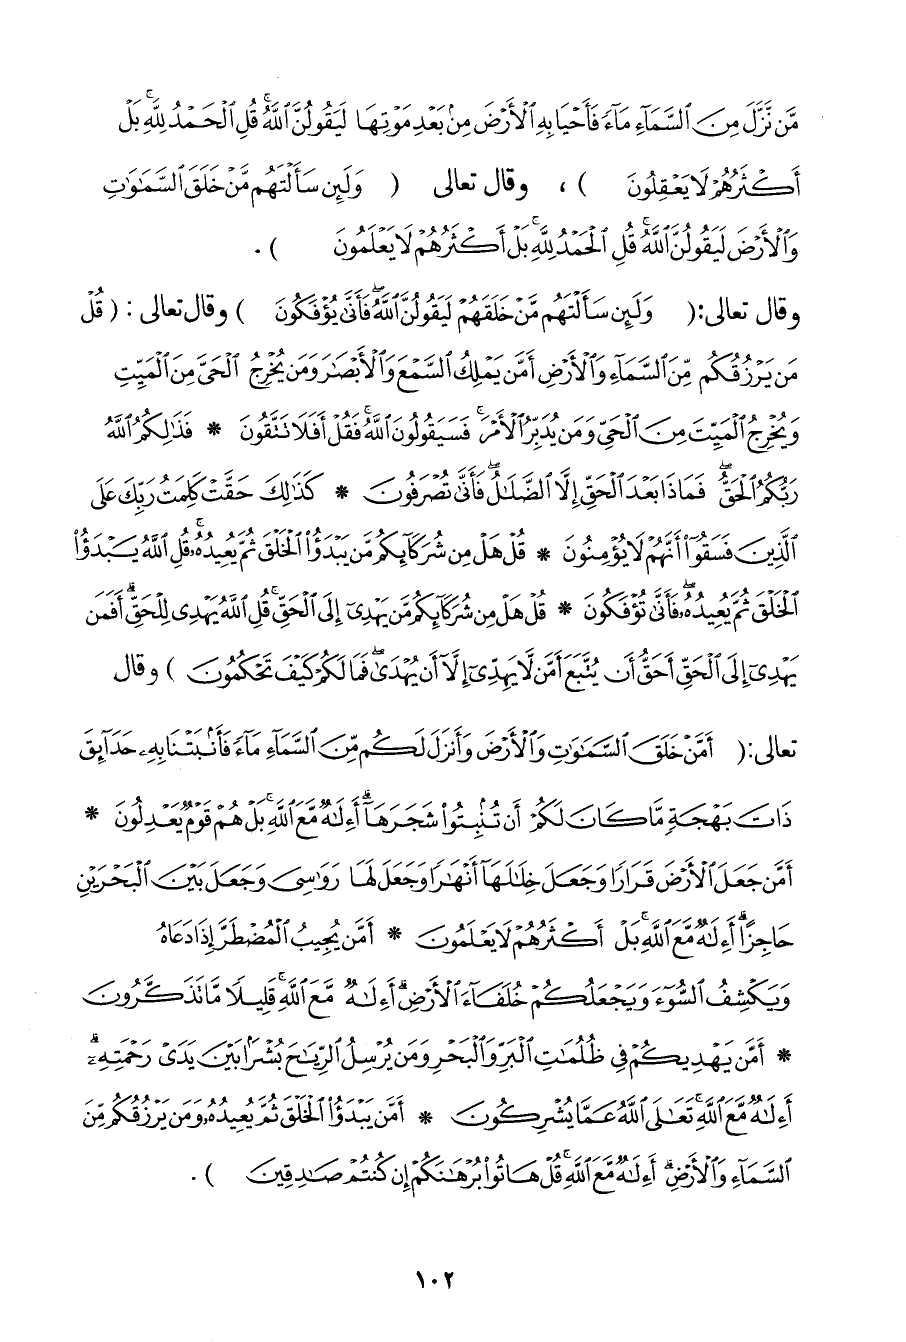 مَّن نَّزَّلَ مِنَ ٱلسَّمَآءِ مَآءً فَأَحْيَا بِهِ ٱلْأَرْضَ مِنۢ بَعْدِ مَوْتِهَا لَيَقُولُنَّ ٱللَّهُ ۚ قُلِ ٱلْحَمْدُ لِلَّهِ ۚ بَلْ
أَكْثَرُهُمْ لَا يَعْقِلُونَ ) ، وقال تعالى ( وَلَئِن سَأَلْتَهُم مَّنْ خَلَقَ ٱلسَّمَٰوَٰتِ
وَٱلْأَرْضَ لَيَقُولُنَّ ٱللَّهُ ۚ قُلِ ٱلْحَمْدُ لِلَّهِ ۚ بَلْ أَكْثَرُهُمْ لَا يَعْلَمُونَ ) .
وقال تعالى:( وَلَئِن سَأَلْتَهُم مَّنْ خَلَقَهُمْ لَيَقُولُنَّ ٱللَّهُ ۖ فَأَنَّىٰ يُؤْفَكُونَ ) وقال تعالى : ( قُلْ
مَن يَرْزُقُكُم مِّنَ ٱلسَّمَآءِ وَٱلْأَرْضِ أَمَّن يَمْلِكُ ٱلسَّمْعَ وَٱلْأَبْصَٰرَ وَمَن يُخْرِجُ ٱلْحَىَّ مِنَ ٱلْمَيِّتِ
وَيُخْرِجُ ٱلْمَيِّتَ مِنَ ٱلْحَىِّ وَمَن يُدَبِّرُ ٱلْأَمْرَ ۚ فَسَيَقُولُونَ ٱللَّهُ ۚ فَقُلْ أَفَلَا تَتَّقُونَ * فَذَٰلِكُمُ ٱللَّهُ
رَبُّكُمُ ٱلْحَقُّ ۖ فَمَاذَا بَعْدَ ٱلْحَقِّ إِلَّا ٱلضَّلَٰلُ ۖ فَأَنَّىٰ تُصْرَفُونَ * كَذَٰلِكَ حَقَّتْ كَلِمَتُ رَبِّكَ عَلَى
ٱلَّذِينَ فَسَقُوٓا۟ أَنَّهُمْ لَا يُؤْمِنُونَ * قُلْ هَلْ مِن شُرَكَآئِكُم مَّن يَبْدَؤُا۟ ٱلْخَلْقَ ثُمَّ يُعِيدُهُۥ ۚ قُلِ ٱللَّهُ يَبْدَؤُا۟
ٱلْخَلْقَ ثُمَّ يُعِيدُهُۥ ۖ فَأَنَّىٰ تُؤْفَكُونَ * قُلْ هَلْ مِن شُرَكَآئِكُم مَّن يَهْدِىٓ إِلَى ٱلْحَقِّ ۚ قُلِ ٱللَّهُ يَهْدِى لِلْحَقِّ ۗ أَفَمَن
يَهْدِىٓ إِلَى ٱلْحَقِّ أَحَقُّ أَن يُتَّبَعَ أَمَّن لَّا يَهِدِّىٓ إِلَّآ أَن يُهْدَىٰ ۖ فَمَا لَكُمْ كَيْفَ تَحْكُمُونَ ) وقال
تعالى:( أَمَّنْ خَلَقَ ٱلسَّمَٰوَٰتِ وَٱلْأَرْضَ وَأَنزَلَ لَكُم مِّنَ ٱلسَّمَآءِ مَآءً فَأَنۢبَتْنَا بِهِۦ حَدَآئِقَ
ذَاتَ بَهْجَةٍ مَّا كَانَ لَكُمْ أَن تُنۢبِتُوا۟ شَجَرَهَآ ۗ أَءِلَٰهٌ مَّعَ ٱللَّهِ ۚ بَلْ هُمْ قَوْمٌ يَعْدِلُونَ *
أَمَّن جَعَلَ ٱلْأَرْضَ قَرَارًا وَجَعَلَ خِلَٰلَهَآ أَنْهَٰرًا وَجَعَلَ لَهَا رَوَٰسِىَ وَجَعَلَ بَيْنَ ٱلْبَحْرَيْنِ
حَاجِزًا ۗ أَءِلَٰهٌ مَّعَ ٱللَّهِ ۚ بَلْ أَكْثَرُهُمْ لَا يَعْلَمُونَ * أَمَّن يُجِيبُ ٱلْمُضْطَرَّ إِذَا دَعَاهُ
وَيَكْشِفُ ٱلسُّوٓءَ وَيَجْعَلُكُمْ خُلَفَآءَ ٱلْأَرْضِ ۗ أَءِلَٰهٌ مَّعَ ٱللَّهِ ۚ قَلِيلًا مَّا تَذَكَّرُونَ
* أَمَّن يَهْدِيكُمْ فِى ظُلُمَٰتِ ٱلْبَرِّ وَٱلْبَحْرِ وَمَن يُرْسِلُ ٱلرِّيَٰحَ بُشْرًۢا بَيْنَ يَدَىْ رَحْمَتِهِۦٓ ۗ
أَءِلَٰهٌ مَّعَ ٱللَّهِ ۚ تَعَٰلَى ٱللَّهُ عَمَّا يُشْرِكُونَ * أَمَّن يَبْدَؤُا۟ ٱلْخَلْقَ ثُمَّ يُعِيدُهُۥ وَمَن يَرْزُقُكُم مِّنَ
ٱلسَّمَآءِ وَٱلْأَرْضِ ۗ أَءِلَٰهٌ مَّعَ ٱللَّهِ ۚ قُلْ هَاتُوا۟ بُرْهَٰنَكُمْ إِن كُنتُمْ صَٰدِقِينَ ) .
١٠٢